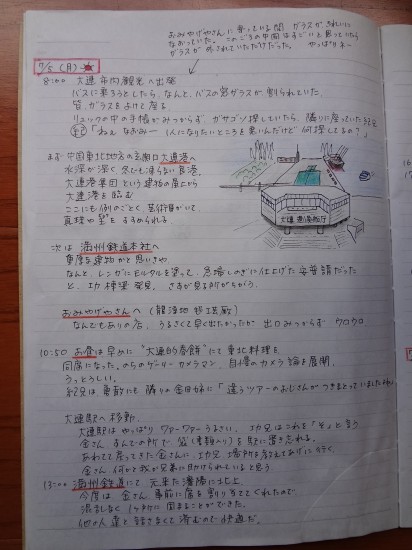 おみやげやさんに寄っている間 ガラスが きれいに
なおっていた。このごろの中国はすごい!と思っていたら
ガラスが外されていただけだった。 やっぱりネー
9/5 (月)
8:00 大連市内観光へ出発
バスに乗ろうとしたら、なんと、バスの窓ガラスが割られていた
皆、ガラスをよけて座る
リュックの中の手帳がみつからず ガサゴソ探していたら、隣りに座っていた
「ねぇ なおみー 1人になりたいところを悪いんだけど 何探してるの?」
まず 中国東北地方の玄関口 大連港へ
水深が深く 冬でも凍らない良港。
大連港集団という建物の屋上から
大連港を臨む
ここにも例のごとく 芸術員がいて
真珠や をすすめられる
大連港
次は 満州鉄道本社へ
重厚な建物かと思いきや
なんと、レンガにモルタルを塗って、急場しのぎに仕上げた安普請だった
と、功棟梁発見。 さすが見る所がちがう。
おみやげやさんへ
なんでもありの店、うるさくて早く出たかったが 出口みつからず ウロウロ
10:50 お昼は早めに "大連的春餅" にて東北料理を
同席になった、のらのゲーリーカメラマン、自慢のカメラ論を展開、
うっとうしい。
紀兄は勇敢にも 隣りの金田姉に「違うツアーのおじさんがつきまとっていましたね」
大連駅へ移動
大連駅はやっぱり ワァーワァーうるさい、功兄はこれを「 」と言う
金さん すんでの所で 袋(書類入り)を駅に置き忘れる。
あわてて戻ってきた金さんに、功兄 場所を教えてあげに行く。
金さん 何かと我が兄弟に助けられていると思う
13:00 満州鉄道にて 元来た瀋陽に北上
今度は 金さん 事前に席を割り当ててくれたので
混乱なく 1ヶ所に固まることができた
他の人達と話さなくて済むので快適だ。